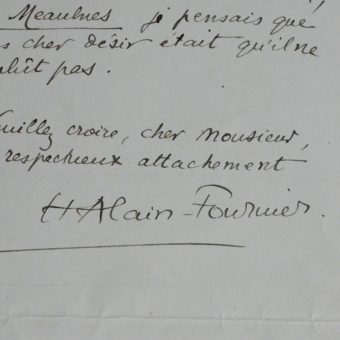 Meaulnes je pensais que
s cher désir était qu'il ne
lût pas.
uillez croire, cher Monsieur,
respectueux attachement
H Alain-Fournier.